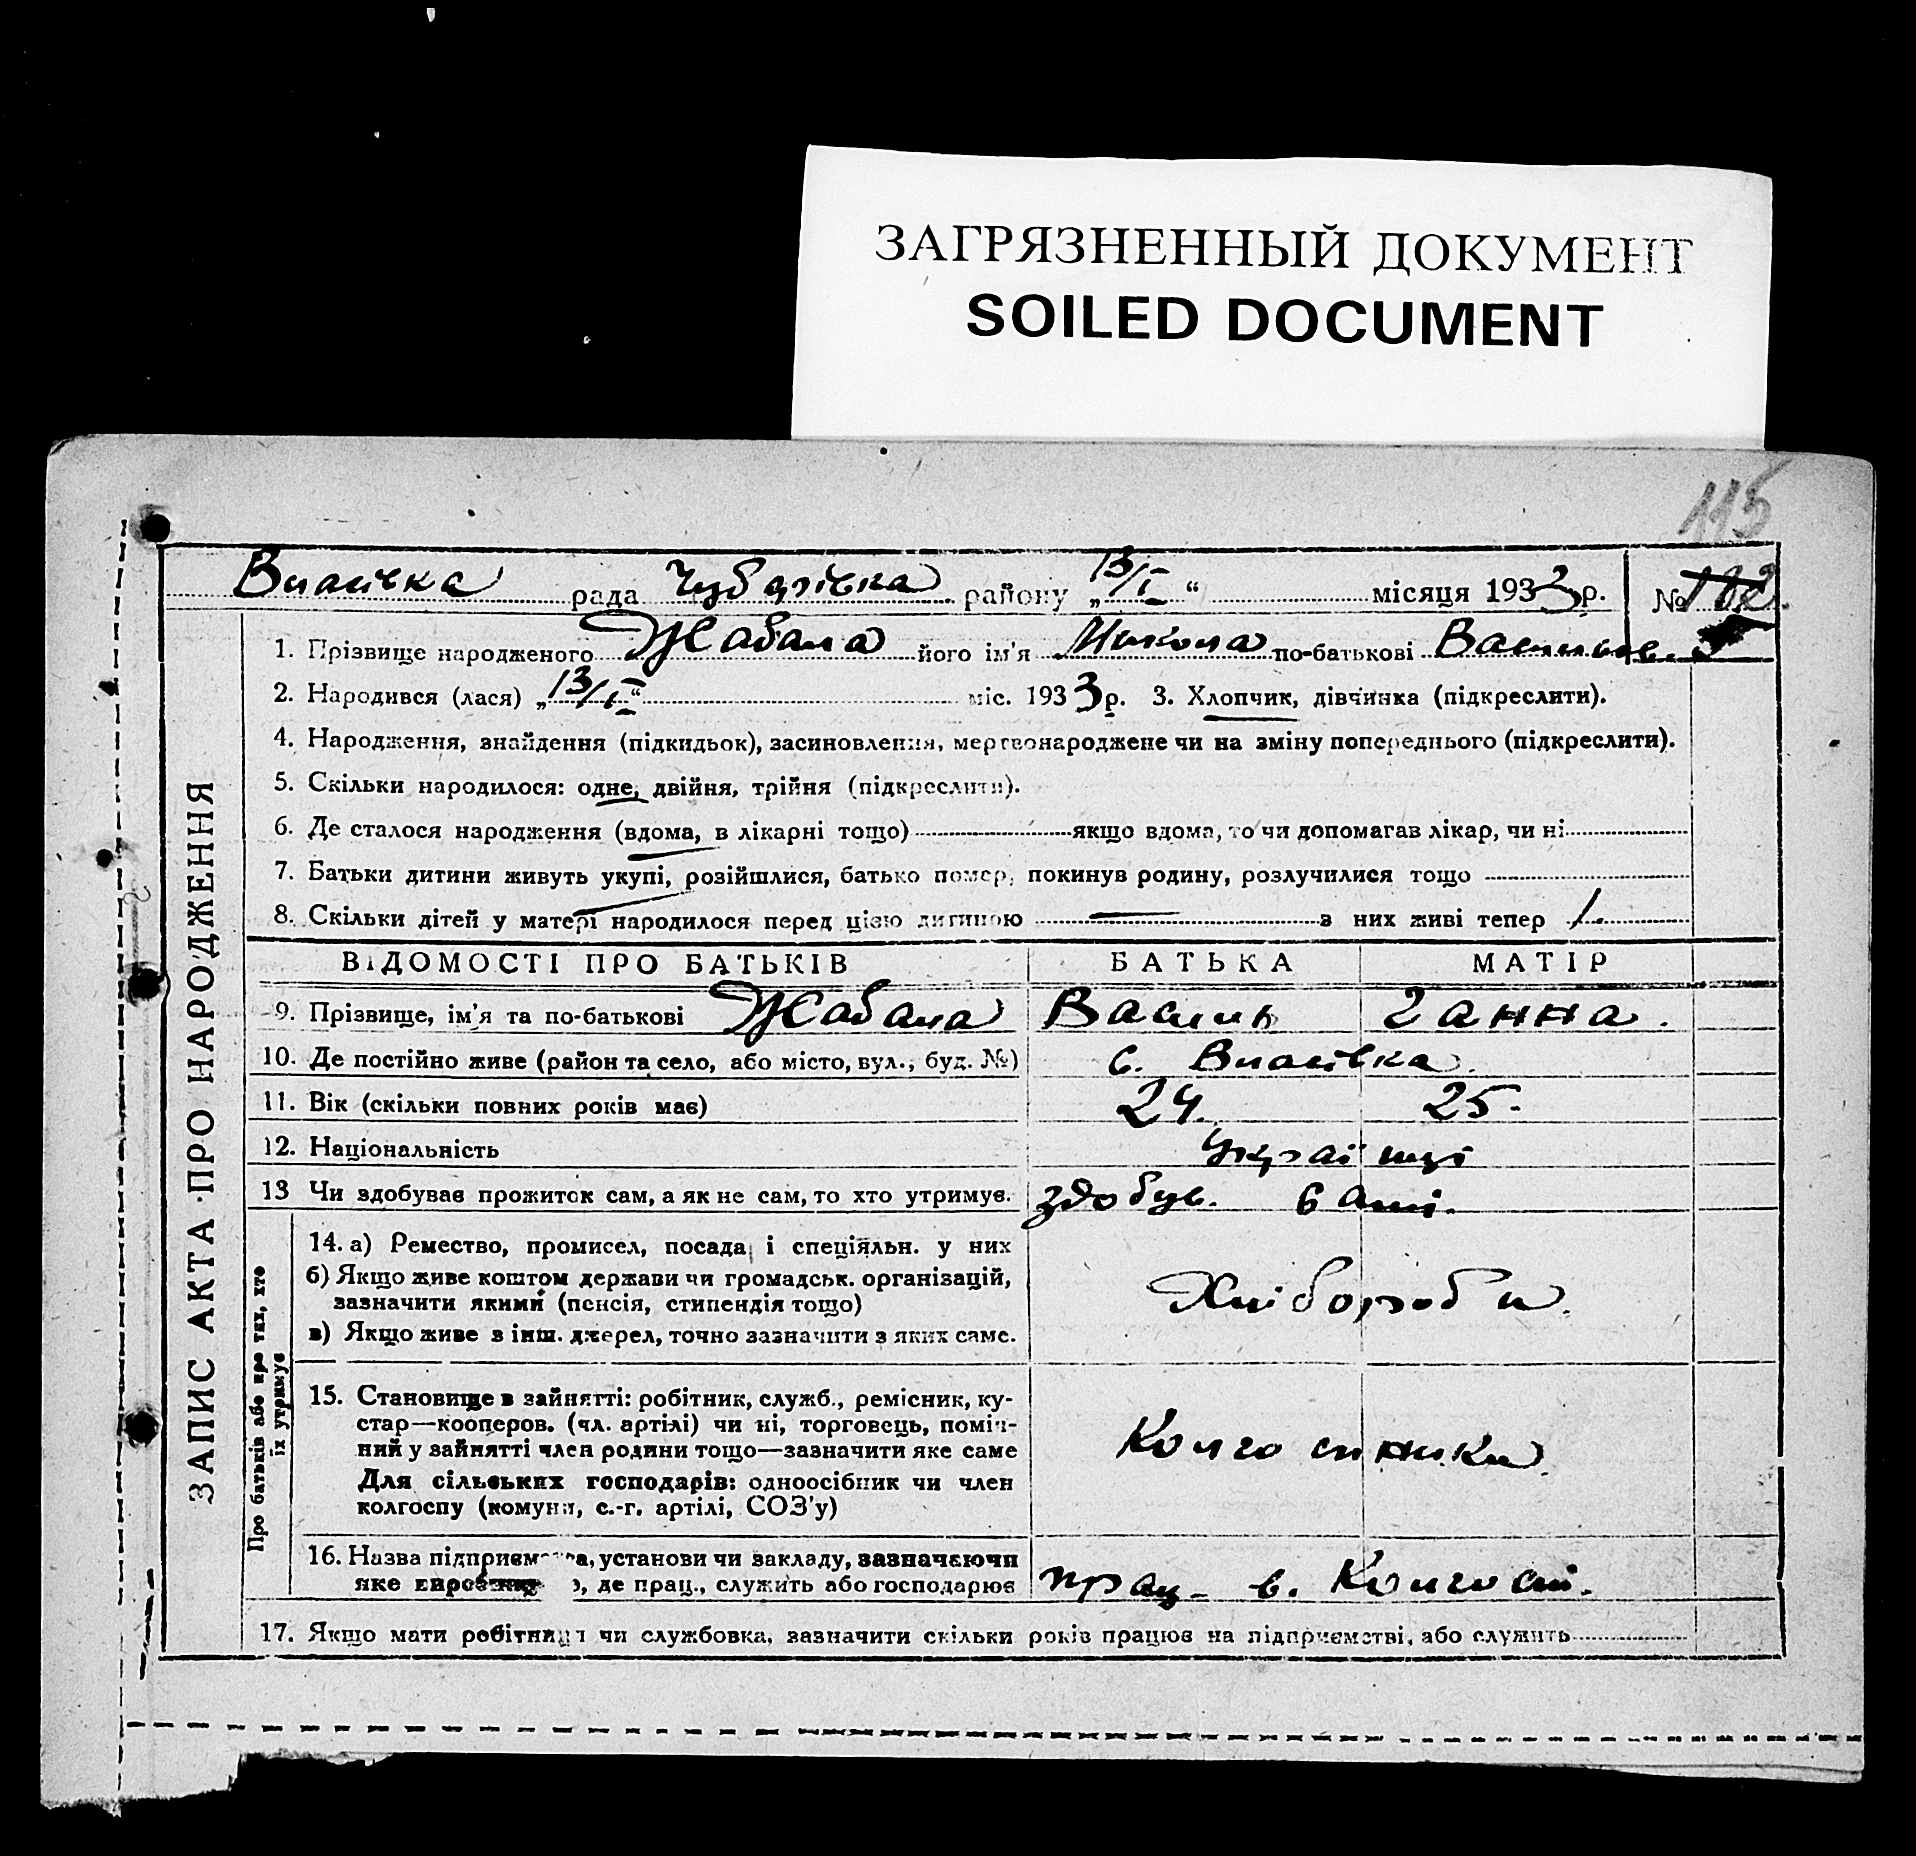 ЗАГРЯЗНЕННЫЙ ДОКУМЕНТ
SOILED DOCUMENT
115
Власівка рада Чубарівка району „13/I“ місяця 1933 р. № 182
1. Прізвище народженого Жабала його ім'я Микола по-батькові Васильов.
2. Народився (лася) „13/I“ міс. 1933 р. 3. Хлопчик, дівчинка (підкреслити).
4. Народження, знайдення (підкидьок), засиновлення, мертвонароджене чи на зміну попереднього (підкреслити).
5. Скільки народилося: одне, двійня, трійня (підкреслити).
6. Де сталося народження (вдома, в лікарні тощо) якщо вдома, то чи допомагав лікар, чи ні
7. Батьки дитини живуть укупі, розійшлися, батько помер, покинув родину, розлучилися тощо
8. Скільки дітей у матері народилося перед цією дитиною — з них живі тепер 1.
ВІДОМОСТІ ПРО БАТЬКІВ БАТЬКА МАТІР
9. Прізвище, ім'я та по-батькові Жабала Василь Ганна.
10. Де постійно живе (район та село, або місто, вул., буд. №) с. Власівка.
11. Вік (скільки повних років має) 24. 25.
12. Національність Українці
13 Чи здобував прожиток сам, а як не сам, то хто утримує. здобув. самі.
14. а) Ремество, промисел, посада і спеціяльн. у них
б) Якщо живе коштом держави чи громадськ. організацій,
зазначити якими (пенсія, стипендія тощо)
Хлібороби.
в) Якщо живе з інш. джерел, точно зазначити з яких саме.
15. Становище в зайнятті: робітник, служб., ремісник, ку-
стар—кооперов. (чл. артілі) чи ні, торговець, поміч-
ний у зайнятті член родини тощо—зазначити яке саме
Колгоспники.
Для сільських господарів: одноосібник чи член
колгоспу (комуни, с.-г. артілі, СОЗ'у)
16. Назва підприємства, установи чи закладу, зазначаючи
яке , де прац., служить або господарює прац- в. Колгоспі.
17. Якщо мати робітниця чи службовка, зазначити скільки років працює на підприємстві, або служить
ЗАПИС АКТА ПРО НАРОДЖЕННЯ
Про батьків або про тих, хто
їх утримує